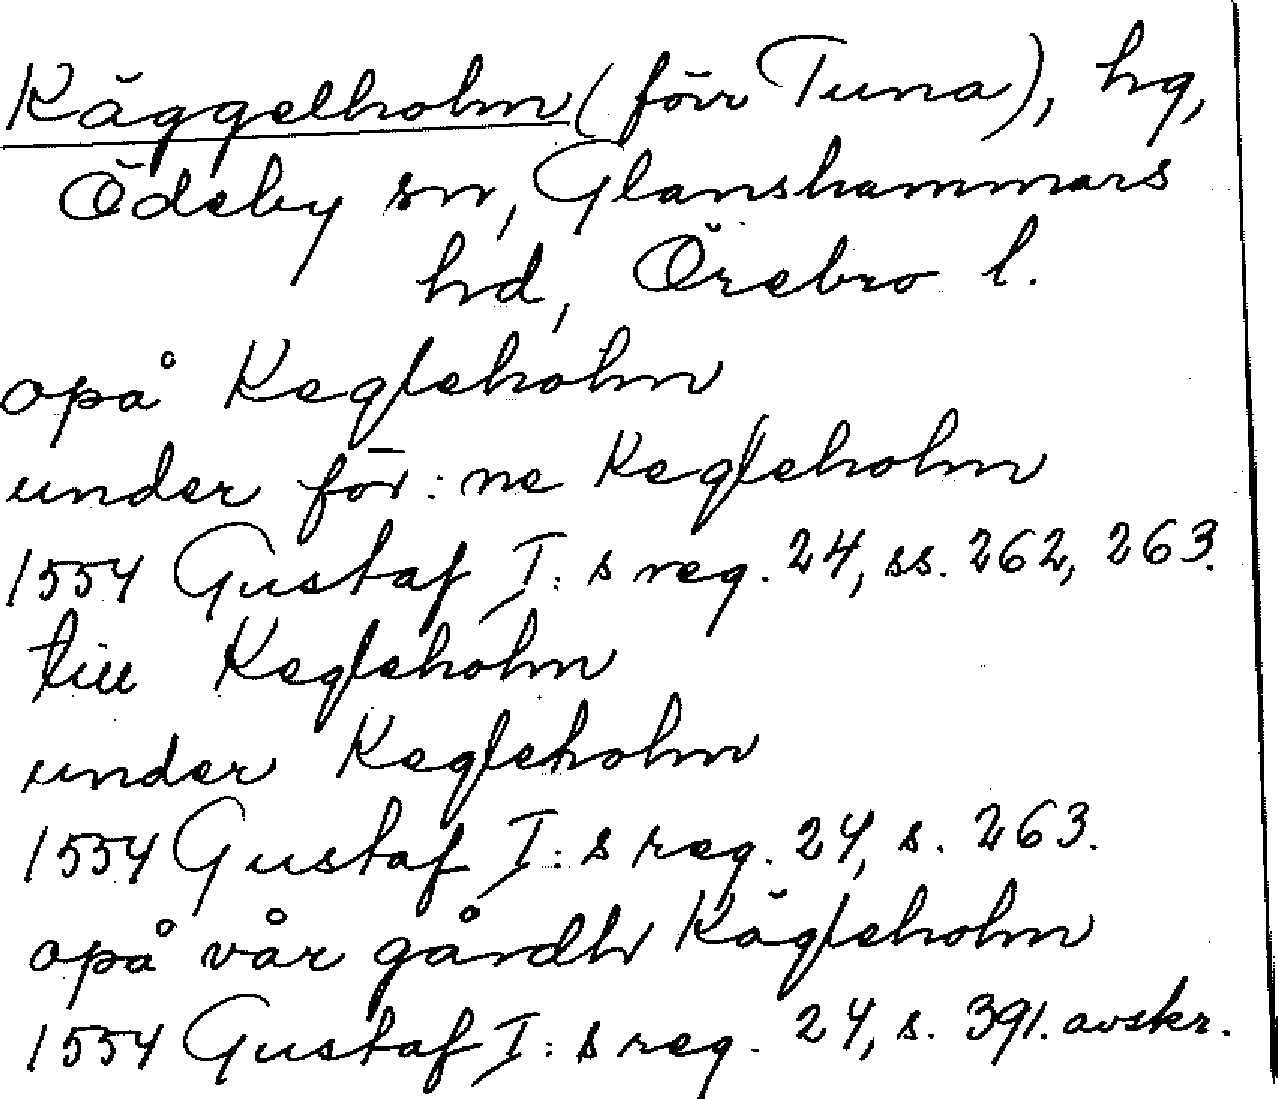 Käggelholm (förr Tuna), hg,
Ödeby sn, Glanshammars
hd, Örebro l.
opå Kegleholm
under för:ne Kegleholm
1554 Gustaf I:s reg. 24, ss. 262, 263.
till Kegleholm
under Kegleholm
1554 Gustaf I:s reg. 24, s. 263.
opå vår gårdh Kägleholm
1554 Gustaf I:s reg. 24, s. 391. avskr.